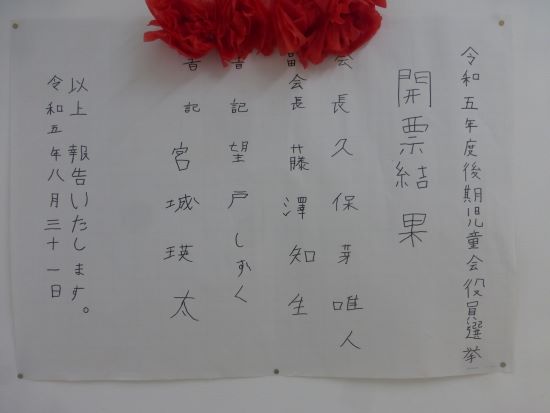 令和五年度後期児童会役員選挙
開票結果
会長 久保芽唯人
副会長 藤澤知生
書記 望戸しずく
書記 宮城瑛太
以上 報告いたします。
令和五年八月三十一日